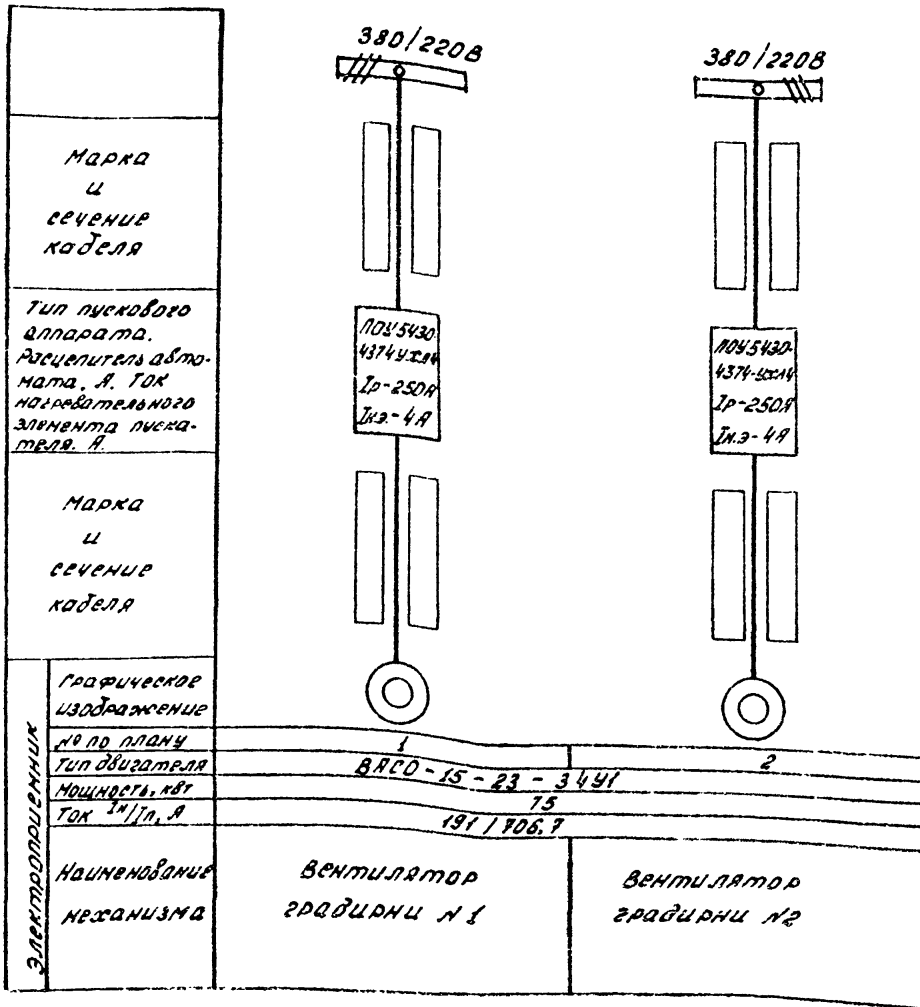 380/220В
380/220В
Марка
и
сечение
кабеля
Тип пускового
аппарата.
Расцепитель авто-
мата, А. Ток
нагревательного
элемента пуска-
теля. А.
ПОУ5430-
4374УХЛ4
Iр-250А
Iн.э.-4А
ПОУ5430-
4374-УХЛ4
Iр-250А
Iн.э-4А
Марка
и
сечение
кабеля
Электроприемник
Графическое
изображение
№ по плану
1
2
Тип двигателя
ВАСО-15-23-34У1
Мощность, кВт
75
Ток Iн/Iп, А
191/706,7
Наименование
механизма
Вентилятор
градирни №1
Вентилятор
градирни №2